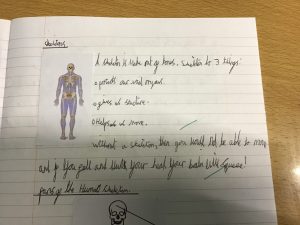 Skeletons
A skeleton is made out of bones. Skeleton do 3 things:
protects our vital organs.
gives us structure.
Helps us to move.
without a skeleton, then you would not be able to move
and if you fall and your head your brain will squeeze!
parts of the Human Skeleton.